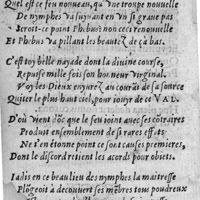 Quel est ce feu nouveau, qu'vne troupe nouuelle
De nymphes va suyuant en vn si graue pas
Seroit-ce point Phebus non ceci renouuelle
Et Phebus va pillant les beautez de çà bas.
C'est toy bille nayade dont la diuine course,
Repousse mille fois son honneur virginal.
Voy les Dieux enyurez au courās de sa source
Quiter le plus haut ciel, pour iouyr de ce VAL.
D'où vient dōc que le feu ioint auec ses cōtraires
Produit ensemblement de si rares effets
Ne t'en étonne point ce sont causes premieres,
Dont le discord retient les acords pour obiets.
Iadis en ce beau lieu des nymphes la maitresse
Plōgeoit à decouuert ses mēbres tous poudreux